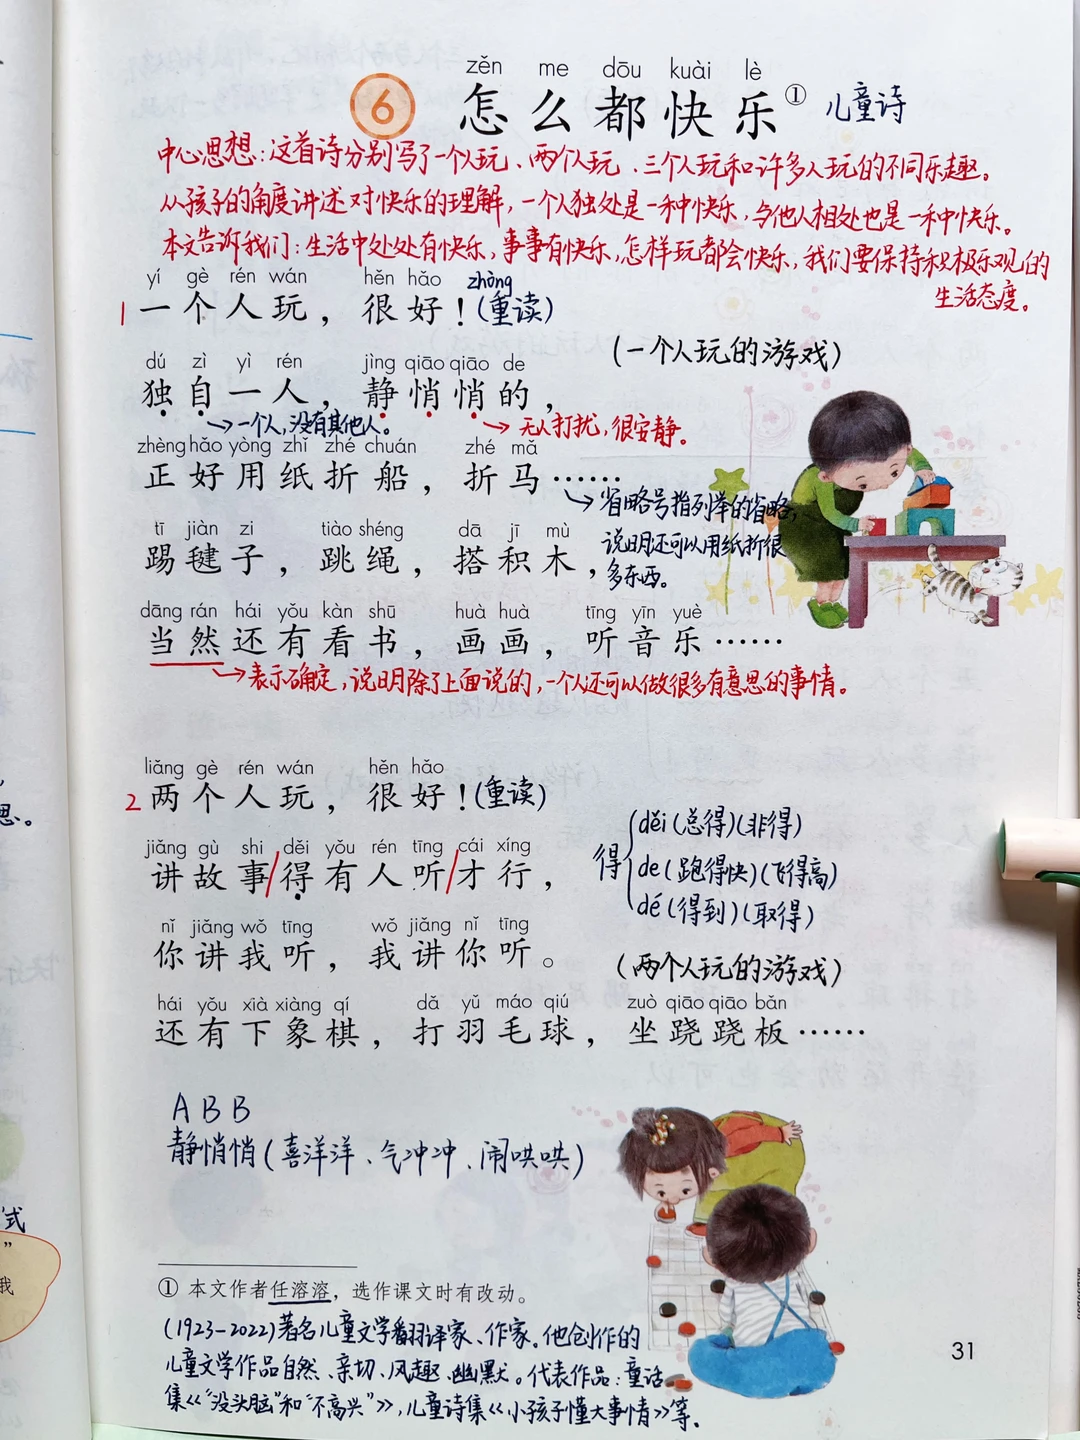 zěn me dōu kuài lè
6 怎么都快乐① 儿童诗
中心思想：这首诗分别写了一个人玩、两个人玩、三个人玩和许多人玩的不同乐趣。
从孩子的角度讲述对快乐的理解，一个人独处是一种快乐，与他人相处也是一种快乐。
本文告诉我们：生活中处处有快乐，事事有快乐，怎样玩都会快乐，我们要保持积极乐观的
生活态度。
yí gè rén wán hěn hǎo zhòng
1 一个人玩，很好！（重读）
（一个人玩的游戏）
dú zì yì rén jìng qiāo qiāo de
独自一人，静悄悄的，
→一个人，没有其他人。 →无人打扰，很安静。
zhèng hǎo yòng zhǐ zhé chuán zhé mǎ
正好用纸折船，折马……
→省略号指列举的省略，
说明还可以用纸折很
多东西。
tī jiàn zi tiào shéng dā jī mù
踢毽子，跳绳，搭积木，
dāng rán hái yǒu kàn shū huà huà tīng yīn yuè
当然还有看书，画画，听音乐……
→表示确定，说明除了上面说的，一个人还可以做很多有意思的事情。
liǎng gè rén wán hěn hǎo
2 两个人玩，很好！（重读）
jiǎng gù shi děi yǒu rén tīng cái xíng
讲故事/得有人听/才行，
得{děi（总得）（非得）
de（跑得快）（飞得高）
dé（得到）（取得）
nǐ jiǎng wǒ tīng wǒ jiǎng nǐ tīng
你讲我听，我讲你听。
（两个人玩的游戏）
hái yǒu xià xiàng qí dǎ yǔ máo qiú zuò qiāo qiāo bǎn
还有下象棋，打羽毛球，坐跷跷板……
ABB
静悄悄（喜洋洋、气冲冲、闹哄哄）
① 本文作者任溶溶，选作课文时有改动。
（1923-2022）著名儿童文学翻译家、作家。他创作的
儿童文学作品自然、亲切、风趣、幽默。代表作品：童话
集《“没头脑”和“不高兴”》，儿童诗集《小孩子懂大事情》等。
31
思。
式
”
我